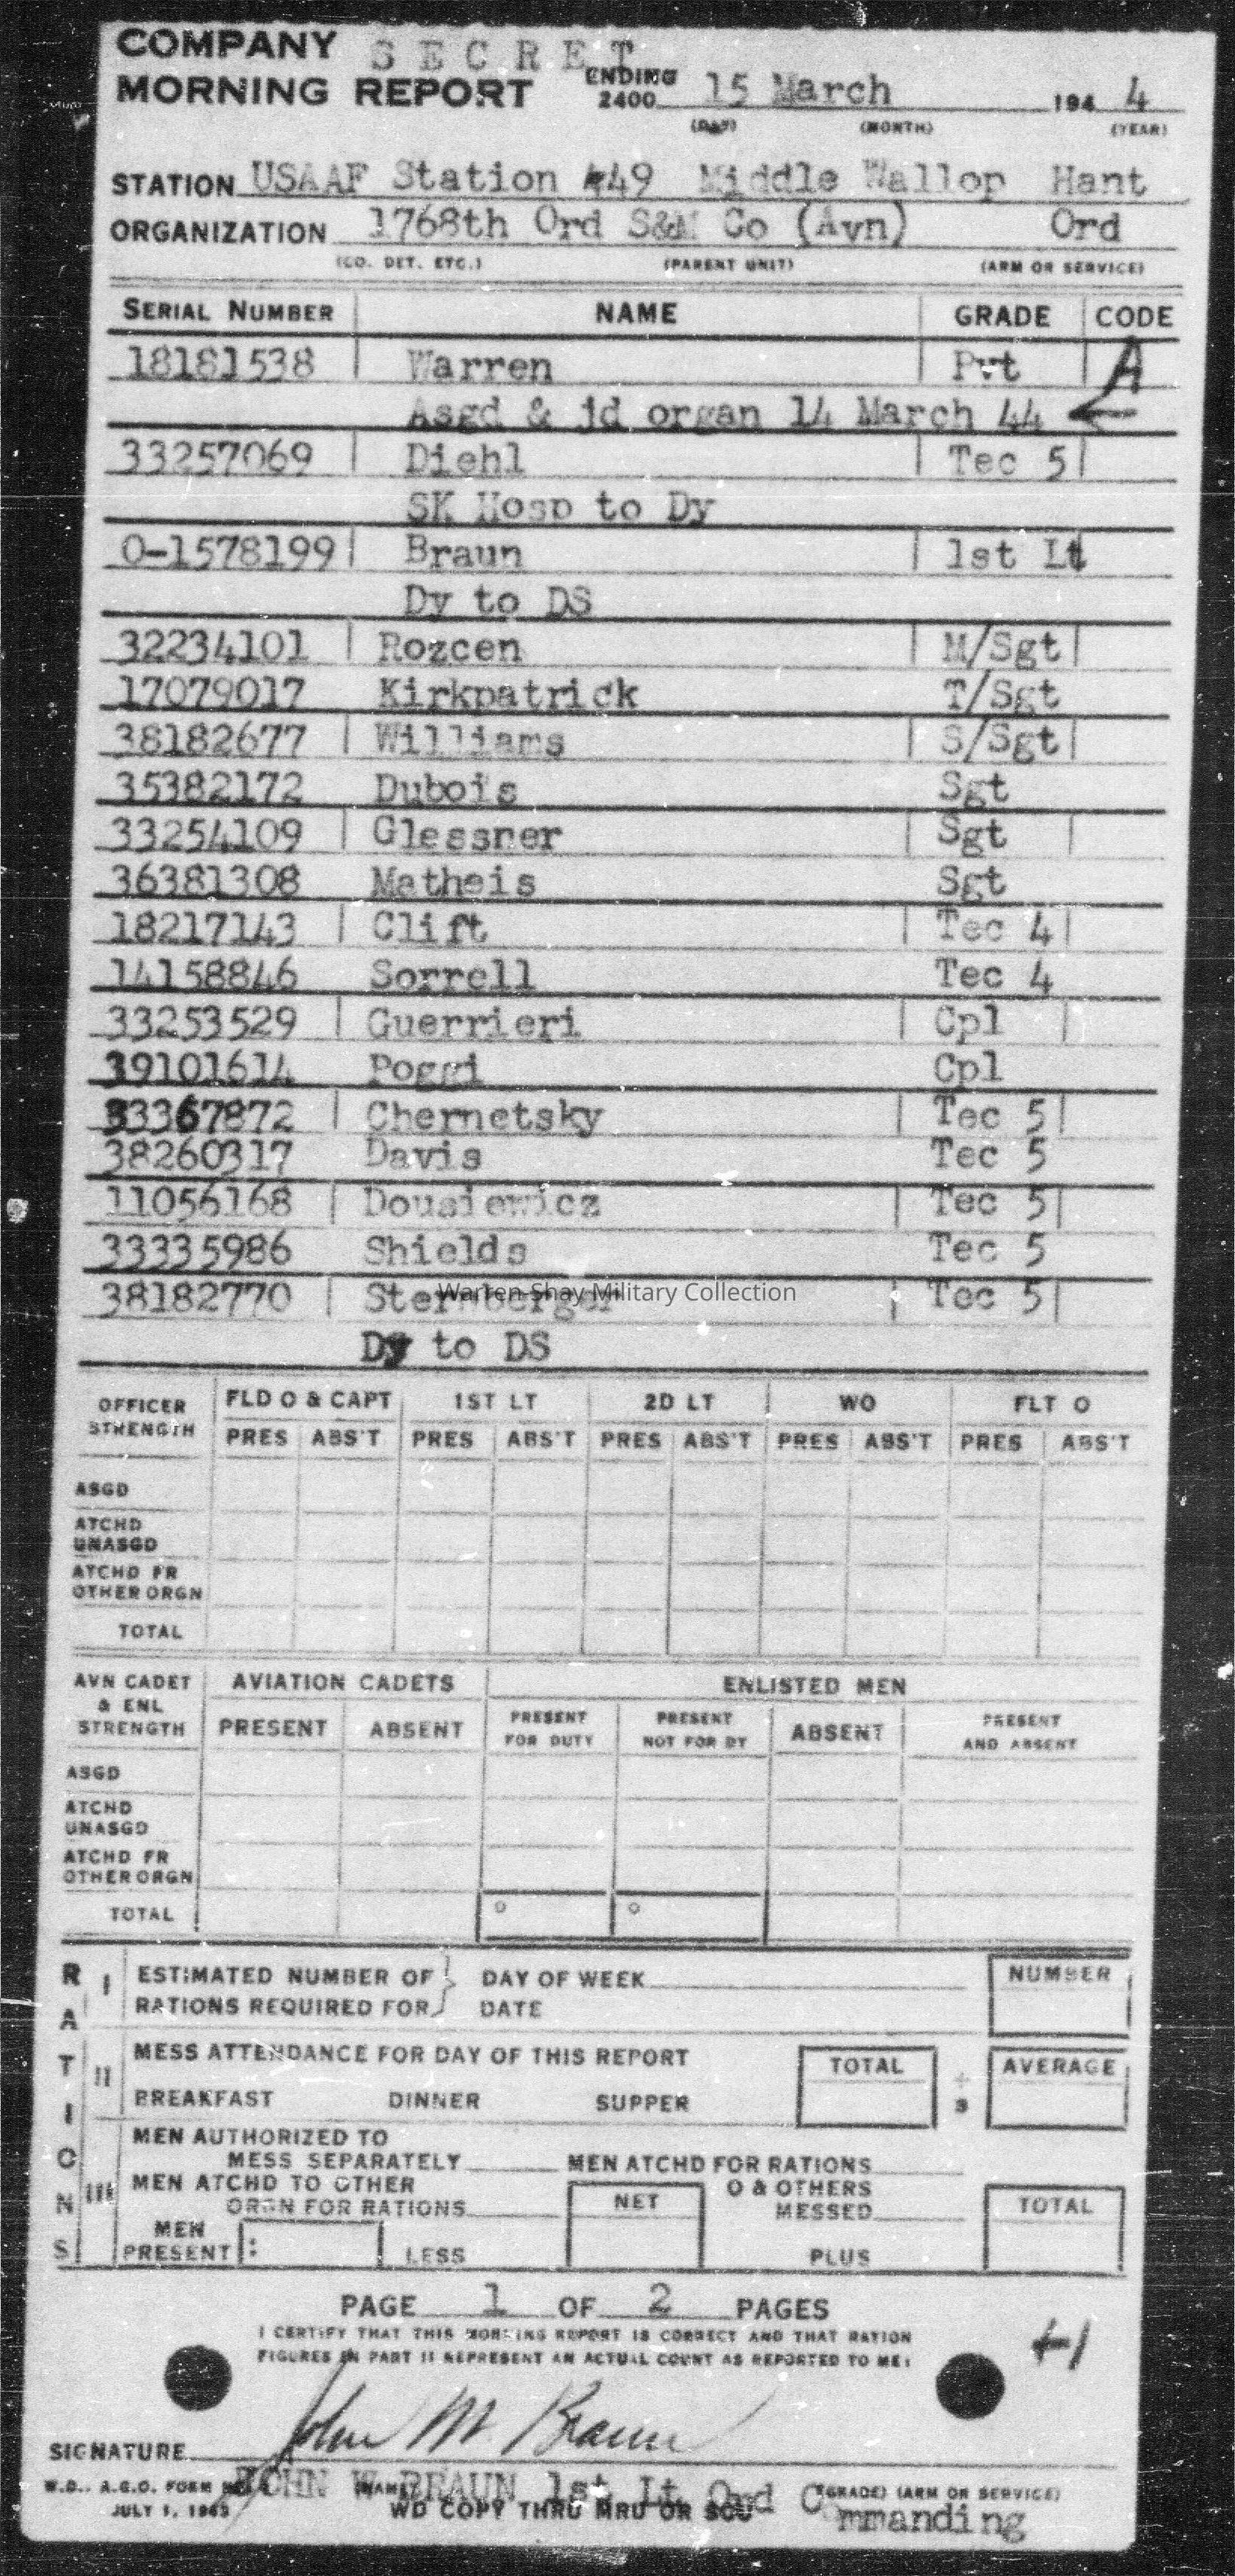 COMPANY SECRET
MORNING REPORT ENDING 2400 15 March 194 4
(DAY) (MONTH) (YEAR)
STATION USAAF Station 449 Middle Wallop Hant
ORGANIZATION 1768th Ord S&M Co (Avn) Ord
(CO. DET. ETC.) (PARENT UNIT) (ARM OR SERVICE)
SERIAL NUMBER NAME GRADE CODE
18181538 Warren Pvt A
Asgd & jd organ 14 March 44
33257069 Diehl Tec 5
SK Hosp to Dy
O-1578199 Braun 1st Lt
Dy to DS
32234101 Rozcen M/Sgt
17079017 Kirkpatrick T/Sgt
38182677 Williams S/Sgt
35382172 Dubois Sgt
33254109 Glessner Sgt
36381308 Matheis Sgt
18217143 Clift Tec 4
14158846 Sorrell Tec 4
33253529 Guerrieri Cpl
39101614 Poggi Cpl
33367872 Chernetsky Tec 5
38260317 Davis Tec 5
11056168 Dousiewicz Tec 5
33335986 Shields Tec 5
38182770 Sternberger Tec 5
Warren-Shay Military Collection
Dy to DS
OFFICER STRENGTH FLD O & CAPT 1ST LT 2D LT WO FLT O
PRES ABS'T PRES ABS'T PRES ABS'T PRES ABS'T PRES ABS'T
ASGD
ATCHD
UNASGD
ATCHD FR
OTHER ORGN
TOTAL
AVN CADET AVIATION CADETS ENLISTED MEN
& ENL
STRENGTH PRESENT ABSENT PRESENT FOR DUTY PRESENT NOT FOR DY ABSENT PRESENT AND ABSENT
ASGD
ATCHD
UNASGD
ATCHD FR
OTHER ORGN
TOTAL
RATIONS
I ESTIMATED NUMBER OF DAY OF WEEK NUMBER
RATIONS REQUIRED FOR DATE
II MESS ATTENDANCE FOR DAY OF THIS REPORT TOTAL ÷ 3 AVERAGE
BREAKFAST DINNER SUPPER
III MEN AUTHORIZED TO
MESS SEPARATELY MEN ATCHD FOR RATIONS
MEN ATCHD TO OTHER O & OTHERS
ORGN FOR RATIONS NET MESSED TOTAL
MEN
PRESENT : LESS PLUS
PAGE 1 OF 2 PAGES
I CERTIFY THAT THIS MORNING REPORT IS CORRECT AND THAT RATION
FIGURES IN PART II REPRESENT AN ACTUAL COUNT AS REPORTED TO ME:
+1
John M. Braun
SIGNATURE
W.D., A.G.O. FORM JOHN W BRAUN 1st Lt Ord Commanding
(NAME) (GRADE) (ARM OR SERVICE)
JULY 1, 1943 WD COPY THRU MRU OR SCU